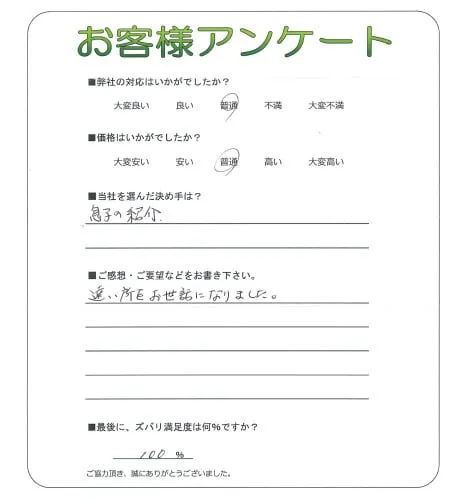 お客様アンケート
■弊社の対応はいかがでしたか？
大変良い 良い 普通 不満 大変不満
■価格はいかがでしたか？
大変安い 安い 普通 高い 大変高い
■当社を選んだ決め手は？
息子の紹介.
■ご感想・ご要望などをお書き下さい。
遠い所をお世話になりました。
■最後に、ズバリ満足度は何%ですか？
100 %
ご協力頂き、誠にありがとうございました。